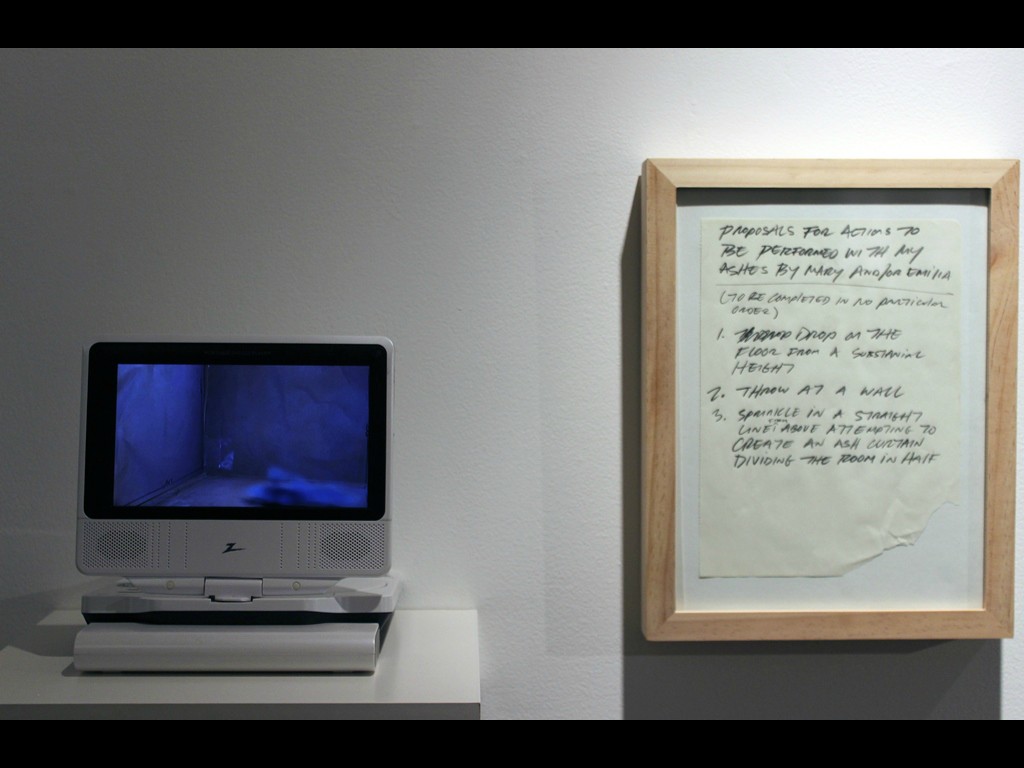 PROPOSALS FOR ACTIONS TO
BE PERFORMED WITH MY
ASHES BY MARY AND/OR EMILIA
(TO BE COMPLETED IN NO PARTICULAR
ORDER)
1. DROP ON THE
FLOOR FROM A SUBSTANTIAL
HEIGHT
2. THROW AT A WALL
3. SPRINKLE IN A STRAIGHT
LINE FROM ABOVE ATTEMPTING TO
CREATE AN ASH CURTAIN
DIVIDING THE ROOM IN HALF